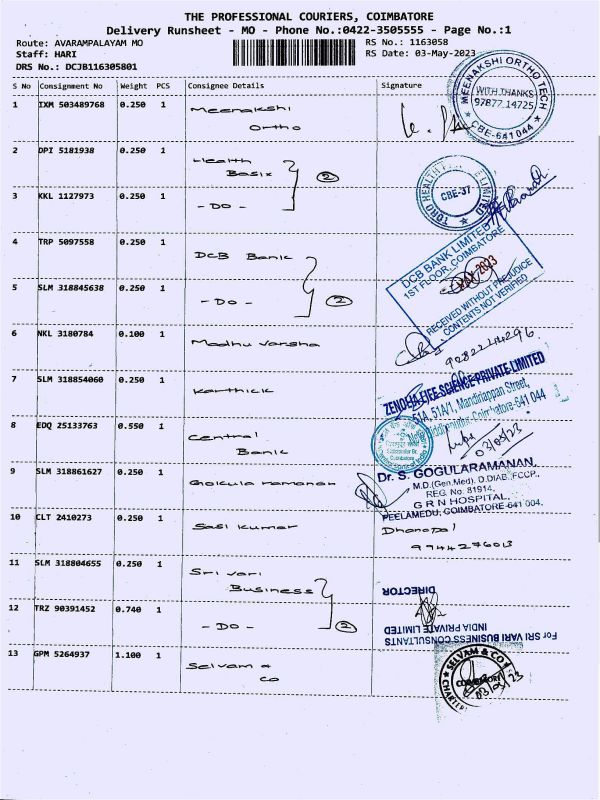 THE PROFESSIONAL COURIERS, COIMBATORE
Delivery Runsheet - MO - Phone No.:0422-3505555 - Page No.:1
Route: AVARAMPALAYAM MO
RS No.: 1163058
Staff: HARI
RS Date: 03-May-2023
DRS No.: DCJB116305801
S No Consignment No Weight PCS Consignee Details Signature
1 IXM 503489768 0.250 1 Meenakshi
Ortho
MEENAKSHI ORTHO TECH
WITH THANKS
97877 14725
CBE-641 044
2 DPI 5181938 0.250 1 Health
Basix
2
3 KKL 1127973 0.250 1 - DO -
LIMITED
CBE-37
4 TRP 5097558 0.250 1 DCB Bank
DCB BANK LIMITED
1ST FLOOR, COIMBATORE
MAY 2023
RECEIVED WITHOUT PREJUDICE
CONTENTS NOT VERIFIED
5 SLM 318845638 0.250 1 - DO -
2
6 NKL 3180784 0.100 1 Madhu varsha
7 SLM 318854060 0.250 1 Karthick
PRIVATE LIMITED
51A, 51A/1, Mandiriappan Street,
Coimbatore-641 044
8 EDQ 25133763 0.550 1 Central
Bank
03/05/23
9 SLM 318861627 0.250 1 Gokula ramanan
Dr. S. GOGULARAMANAN,
M.D.(Gen.Med), D.DIAB, FCCP.,
REG. No: 81914.
G R N HOSPITAL,
PEELAMEDU, COIMBATORE-641 004.
10 CLT 2410273 0.250 1 Sasi kumar
Dhanapal
9944276013
11 SLM 318804655 0.250 1 Sri vari
Business
2
DIRECTOR
12 TRZ 90391452 0.740 1 - DO -
For SRI VARI BUSINESS CONSULTANTS
INDIA PRIVATE LIMITED
13 GPM 5264937 1.100 1 Selvam &
Co
SELVAM & CO